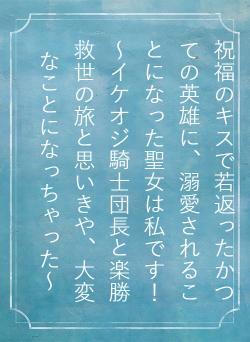 祝福のキスで若返ったかつ
ての英雄に、溺愛されるこ
とになった聖女は私です！
～イケオジ騎士団長と楽勝
救世の旅と思いきや、大変
なことになっちゃった～